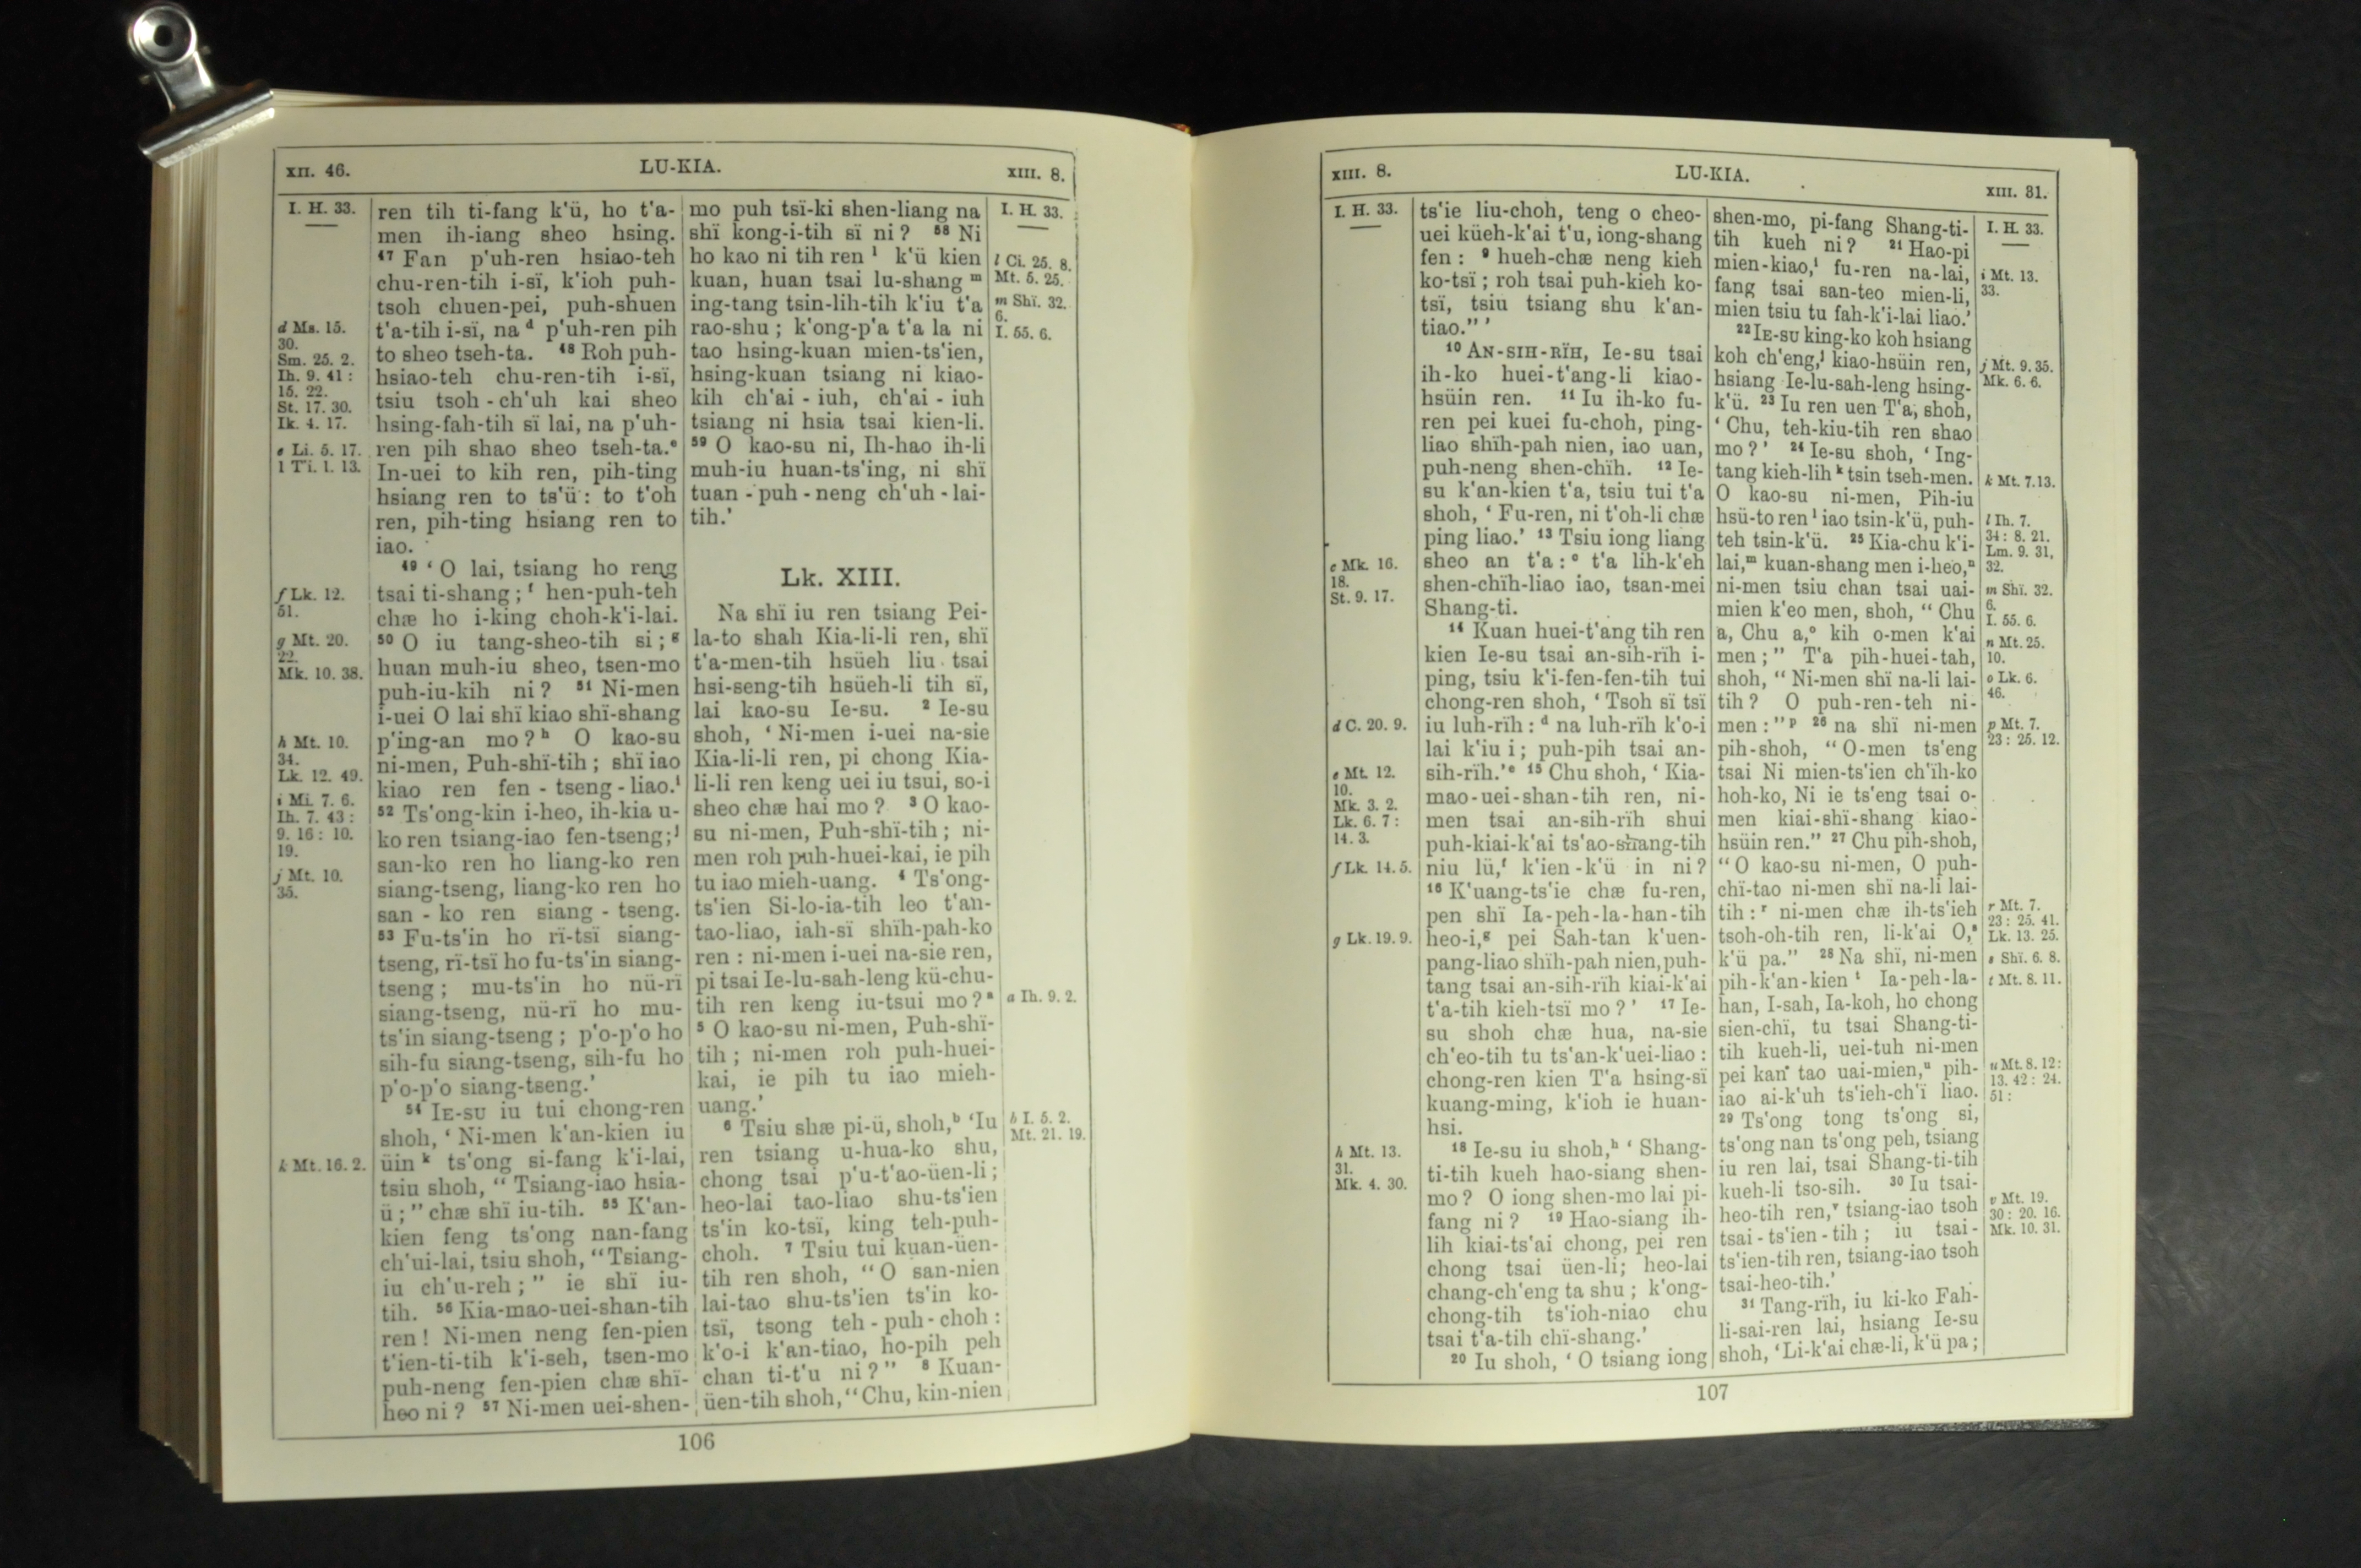 XII. 46.
LU-KIA.
XIII. 8.
I. H. 33.
d Ms. 15.
30.
Sm. 25. 2.
Ih. 9. 41 :
15. 22.
St. 17. 30.
Ik. 4. 17.
e Li. 5. 17.
1 Ti. 1. 13.
f Lk. 12.
51.
g Mt. 20.
22.
Mk. 10. 38.
h Mt. 10.
34.
Lk. 12. 49.
i Mi. 7. 6.
Ih. 7. 43 :
9. 16 : 10.
19.
j Mt. 10.
35.
k Mt. 16. 2.
ren tih ti-fang k'ü, ho t'a-
men ih-iang sheo hsing.
47 Fan p'uh-ren hsiao-teh
chu-ren-tih i-sï, k'ioh puh-
tsoh chuen-pei, puh-shuen
t'a-tih i-sï, na d p'uh-ren pih
to sheo tseh-ta. 48 Roh puh-
hsiao-teh chu-ren-tih i-sï,
tsiu tsoh-ch'uh kai sheo
hsing-fah-tih sï lai, na p'uh-
ren pih shao sheo tseh-ta.e
In-uei to kih ren, pih-ting
hsiang ren to ts'ü : to t'oh
ren, pih-ting hsiang ren to
iao.
49 ‘ O lai, tsiang ho reng
tsai ti-shang ; f hen-puh-teh
chæ ho i-king choh-k'i-lai.
50 O iu tang-sheo-tih si ; g
huan muh-iu sheo, tsen-mo
puh-iu-kih ni ? 51 Ni-men
i-uei O lai shï kiao shï-shang
p'ing-an mo ? h O kao-su
ni-men, Puh-shï-tih ; shï iao
kiao ren fen - tseng - liao.i
52 Ts'ong-kin i-heo, ih-kia u-
ko ren tsiang-iao fen-tseng ;j
san-ko ren ho liang-ko ren
siang-tseng, liang-ko ren ho
san - ko ren siang - tseng.
53 Fu-ts'in ho rï-tsï siang-
tseng, rï-tsï ho fu-ts'in siang-
tseng ; mu-ts'in ho nü-rï
siang-tseng, nü-rï ho mu-
ts'in siang-tseng ; p'o-p'o ho
sih-fu siang-tseng, sih-fu ho
p'o-p'o siang-tseng.’
54 IE-SU iu tui chong-ren
shoh, ‘ Ni-men k'an-kien iu
üin k ts'ong si-fang k'i-lai,
tsiu shoh, “ Tsiang-iao hsia-
ü ; ” chæ shï iu-tih. 55 K'an-
kien feng ts'ong nan-fang
ch'ui-lai, tsiu shoh, “ Tsiang-
iu ch'u-reh ; ” ie shï iu-
tih. 56 Kia-mao-uei-shan-tih
ren ! Ni-men neng fen-pien
t'ien-ti-tih k'i-seh, tsen-mo
puh-neng fen-pien chæ shï-
heo ni ? 57 Ni-men uei-shen-
mo puh tsï-ki shen-liang na
shï kong-i-tih sï ni ? 58 Ni
ho kao ni tih ren l k'ü kien
kuan, huan tsai lu-shang m
ing-tang tsin-lih-tih k'iu t'a
rao-shu ; k'ong-p'a t'a la ni
tao hsing-kuan mien-ts'ien,
hsing-kuan tsiang ni kiao-
kih ch'ai - iuh, ch'ai - iuh
tsiang ni hsia tsai kien-li.
59 O kao-su ni, Ih-hao ih-li
muh-iu huan-ts'ing, ni shï
tuan - puh - neng ch'uh - lai-
tih.’
Lk. XIII.
Na shï iu ren tsiang Pei-
la-to shah Kia-li-li ren, shï
t'a-men-tih hsüeh liu tsai
hsi-seng-tih hsüeh-li tih sï,
lai kao-su Ie-su. 2 Ie-su
shoh, ‘ Ni-men i-uei na-sie
Kia-li-li ren, pi chong Kia-
li-li ren keng uei iu tsui, so-i
sheo chæ hai mo ? 3 O kao-
su ni-men, Puh-shï-tih ; ni-
men roh puh-huei-kai, ie pih
tu iao mieh-uang. 4 Ts'ong-
ts'ien Si-lo-ia-tih leo t'an-
tao-liao, iah-sï shïh-pah-ko
ren : ni-men i-uei na-sie ren,
pi tsai Ie-lu-sah-leng kü-chu-
tih ren keng iu-tsui mo ? a
5 O kao-su ni-men, Puh-shï-
tih ; ni-men roh puh-huei-
kai, ie pih tu iao mieh-
uang.’
6 Tsiu shæ pi-ü, shoh,b ‘Iu
ren tsiang u-hua-ko shu,
chong tsai p'u-t'ao-üen-li ;
heo-lai tao-liao shu-ts'ien
ts'in ko-tsï, king teh-puh-
choh. 7 Tsiu tui kuan-üen-
tih ren shoh, “O san-nien
lai-tao shu-ts'ien ts'in ko-
tsï, tsong teh - puh - choh :
k'o-i k'an-tiao, ho-pih peh
chan ti-t'u ni ? ” 8 Kuan-
üen-tih shoh, “ Chu, kin-nien
I. H. 33.
l Ci. 25. 8.
Mt. 5. 25.
m Shï. 32.
6.
I. 55. 6.
a Ih. 9. 2.
b I. 5. 2.
Mt. 21. 19.
106
XIII. 8.
LU-KIA.
XIII. 31.
I. H. 33.
c Mk. 16.
18.
St. 9. 17.
d C. 20. 9.
e Mt. 12.
10.
Mk. 3. 2.
Lk. 6. 7 :
14. 3.
f Lk. 14. 5.
g Lk. 19. 9.
h Mt. 13.
31.
Mk. 4. 30.
ts'ie liu-choh, teng o cheo-
uei küeh-k'ai t'u, iong-shang
fen : 9 hueh-chæ neng kieh
ko-tsï ; roh tsai puh-kieh ko-
tsï, tsiu tsiang shu k'an-
tiao.” ’
10 AN-SIH-RÏH, Ie-su tsai
ih-ko huei-t'ang-li kiao-
hsüin ren. 11 Iu ih-ko fu-
ren pei kuei fu-choh, ping-
liao shïh-pah nien, iao uan,
puh-neng shen-chïh. 12 Ie-
su k'an-kien t'a, tsiu tui t'a
shoh, ‘ Fu-ren, ni t'oh-li chæ
ping liao.’ 13 Tsiu iong liang
sheo an t'a : c t'a lih-k'eh
shen-chïh-liao iao, tsan-mei
Shang-ti.
14 Kuan huei-t'ang tih ren
kien Ie-su tsai an-sih-rïh i-
ping, tsiu k'i-fen-fen-tih tui
chong-ren shoh, ‘ Tsoh sï tsï
iu luh-rïh : d na luh-rïh k'o-i
lai k'iu i ; puh-pih tsai an-
sih-rïh.’e 15 Chu shoh, ‘ Kia-
mao-uei-shan-tih ren, ni-
men tsai an-sih-rïh shui
puh-kiai-k'ai ts'ao-shang-tih
niu lü,f k'ien-k'ü in ni ?
16 K'uang-ts'ie chæ fu-ren,
pen shï Ia-peh-la-han-tih
heo-i,g pei Sah-tan k'uen-
pang-liao shïh-pah nien, puh-
tang tsai an-sih-rïh kiai-k'ai
t'a-tih kieh-tsï mo ? ’ 17 Ie-
su shoh chæ hua, na-sie
ch'eo-tih tu ts'an-k'uei-liao :
chong-ren kien T'a hsing-sï
kuang-ming, k'ioh ie huan-
hsi.
18 Ie-su iu shoh,h ‘ Shang-
ti-tih kueh hao-siang shen-
mo ? O iong shen-mo lai pi-
fang ni ? 19 Hao-siang ih-
lih kiai-ts'ai chong, pei ren
chong tsai üen-li ; heo-lai
chang-ch'eng ta shu ; k'ong-
chong-tih ts'ioh-niao chu
tsai t'a-tih chï-shang.’
20 Iu shoh, ‘ O tsiang iong
shen-mo, pi-fang Shang-ti-
tih kueh ni ? 21 Hao-pi
mien-kiao,i fu-ren na-lai,
fang tsai san-teo mien-li,
mien tsiu tu fah-k'i-lai liao.’
22 IE-SU king-ko koh hsiang
koh ch'eng,j kiao-hsüin ren,
hsiang Ie-lu-sah-leng hsing-
k'ü. 23 Iu ren uen T'a, shoh,
‘ Chu, teh-kiu-tih ren shao
mo ? ’ 24 Ie-su shoh, ‘ Ing-
tang kieh-lih k tsin tseh-men.
O kao-su ni-men, Pih-iu
hsü-to ren l iao tsin-k'ü, puh-
teh tsin-k'ü. 25 Kia-chu k'i-
lai,m kuan-shang men i-heo,n
ni-men tsiu chan tsai uai-
mien k'eo men, shoh, “ Chu
a, Chu a,o kih o-men k'ai
men ; ” T'a pih-huei-tah,
shoh, “ Ni-men shï na-li lai-
tih ? O puh-ren-teh ni-
men : ” p 26 na shï ni-men
pih-shoh, “ O-men ts'eng
tsai Ni mien-ts'ien ch'ïh-ko
hoh-ko, Ni ie ts'eng tsai o-
men kiai-shï-shang kiao-
hsüin ren.” 27 Chu pih-shoh,
“ O kao-su ni-men, O puh-
chï-tao ni-men shï na-li lai-
tih : r ni-men chæ ih-ts'ieh
tsoh-oh-tih ren, li-k'ai O,s
k'ü pa.” 28 Na shï, ni-men
pih-k'an-kien t Ia-peh-la-
han, I-sah, Ia-koh, ho chong
sien-chï, tu tsai Shang-ti-
tih kueh-li, uei-tuh ni-men
pei kan tao uai-mien,u pih-
iao ai-k'uh ts'ieh-ch'ï liao.
29 Ts'ong tong ts'ong si,
ts'ong nan ts'ong peh, tsiang
iu ren lai, tsai Shang-ti-tih
kueh-li tso-sih. 30 Iu tsai-
heo-tih ren,v tsiang-iao tsoh
tsai - ts'ien - tih ; iu tsai -
ts'ien-tih ren, tsiang-iao tsoh
tsai-heo-tih.’
31 Tang-rïh, iu ki-ko Fah-
li-sai-ren lai, hsiang Ie-su
shoh, ‘Li-k'ai chæ-li, k'ü pa ;
I. H. 33.
i Mt. 13.
33.
j Mt. 9. 35.
Mk. 6. 6.
k Mt. 7. 13.
l Ih. 7.
34 : 8. 21.
Lm. 9. 31,
32.
m Shï. 32.
6.
I. 55. 6.
n Mt. 25.
10.
o Lk. 6.
46.
p Mt. 7.
23 : 25. 12.
r Mt. 7.
23 : 25. 41.
Lk. 13. 25.
s Shï. 6. 8.
t Mt. 8. 11.
u Mt. 8. 12 :
13. 42 : 24.
51 :
v Mt. 19.
30 : 20. 16.
Mk. 10. 31.
107